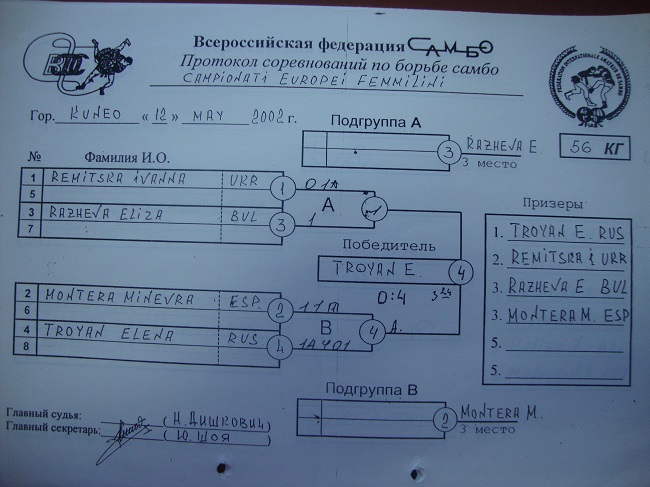 Всероссийская федерация САМБО
Протокол соревнований по борьбе самбо
CAMPIONATI EUROPEI FEMMILINI
Гор. KUNEO « 12 » MAY 2002 г.
Подгруппа А
3 RAZHEVA E.
3 место
56 КГ
№ Фамилия И.О.
1 REMITSKA iVANNA UKR 1
5
3 RAZHEVA ELIZA BUL 3 1
7
А
Победитель
TROYAN E. 4
0:4
2 MONTERA MINEVRA ESP. 2
6
4 TROYAN ELENA RUS 4
8
В 4 A.
Призеры
1. TROYAN E. RUS
2. REMITSKA i UKR
3. RAZHEVA E. BUL
3. MONTERA M. ESP
5.
5.
Подгруппа В
2 MONTERA M.
3 место
Главный судья: (Н. ДИШКОВИЧ)
Главный секретарь: (Ю. ШОЯ)